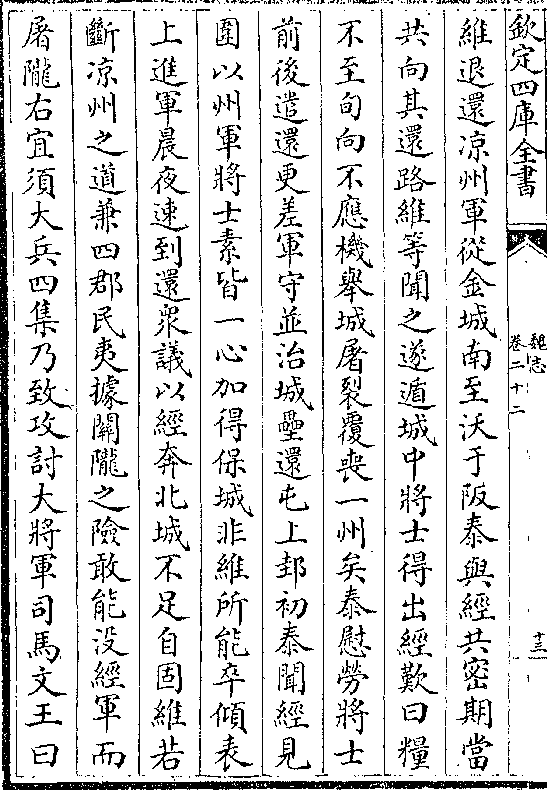 欽定四庫全書
魏志
卷二十二
十三
維退還凉州軍從金城南至沃于阪泰與經共密期當
共向其還路維等聞之遂遁城中將士得出經歎曰糧
不至旬向不應機舉城屠裂覆喪一州矣泰慰勞將士
前後遣還更差軍守並治城壘還屯上邽初泰聞經見
圍以州軍將士素皆一心加得保城非維所能卒傾表
上進軍晨夜速到還衆議以經奔北城不足自固維若
斷凉州之道兼四郡民夷據關隴之險敢能没經軍而
屠隴右宜須大兵四集乃致攻討大將軍司馬文王曰